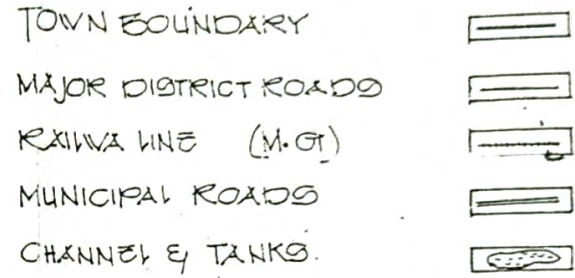 TOWN BOUNDARY
MAJOR DISTRICT ROADS
RAILWA LINE (M.G)
MUNICIPAL ROADS
CHANNEL & TANKS.